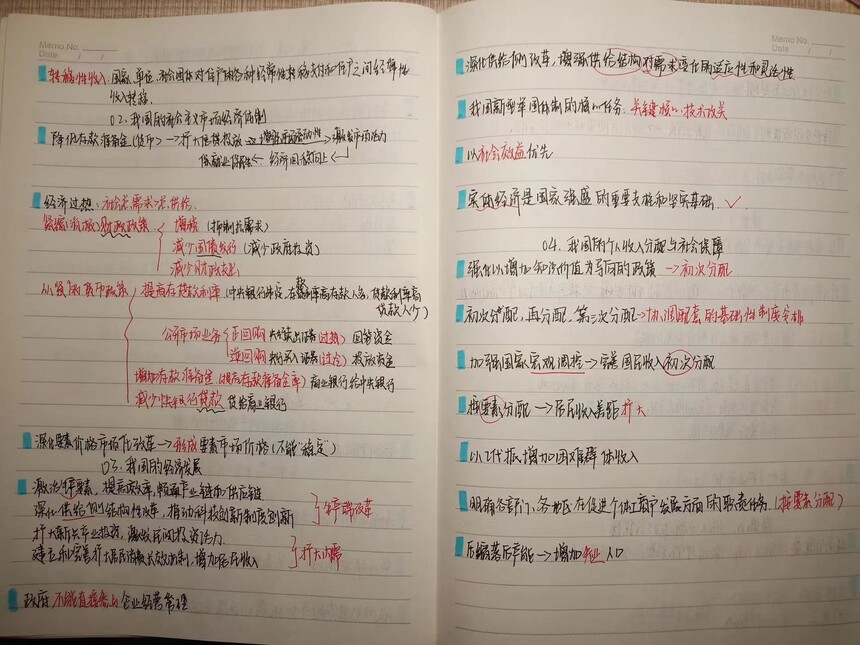 Memo No.
Date / /
转移性收入：国家、单位、社会团体对住户的各种经常性转移支付和住户之间经常性
收入转移.
02. 我国的社会主义市场经济体制
降低存款准备金(货币) → 扩大信贷投放 → 增强市场流动性 → 激发市场活力
保就业保民生 ← 经济回稳向上 ←
经济过热：社会总需求>总供给.
紧缩(积极)财政政策 增税 (抑制总需求)
减少国债发行 (减少政府投资)
减少财政支出
从紧的货币政策 提高存贷款利率 (中央银行决定, 存款利率高存款人多, 贷款利率高
贷款人少)
公开市场业务 正回购 央行卖出证券(过热) 回笼资金
逆回购 央行买入证券(过冷) 投放资金
增加存款准备金 (提高存款准备金率) 商业银行给中央银行
减少央行贷款 贷给商业银行
深化要素价格市场化改革 → 形成要素市场价格 (不能"稳定")
03. 我国的经济发展
激活要素, 提高效率, 畅通产业链和供应链
深化供给侧结构性改革, 推动科技创新制度创新 生产端改革
扩大新兴产业投资, 激发民间投资活力
建立和完善扩大居民消费长效机制, 增加居民收入 扩大内需
政府不能直接参与企业经营管理
Memo No.
Date / /
深化供给侧改革, 增强供给结构对需求变化的适应性和灵活性
我国新型举国体制的核心任务：关键核心技术攻关
以社会效益优先
实体经济是国家强盛的重要支柱和坚实基础. ✓
04. 我国的个人收入分配与社会保障
强化以增加知识价值为导向的政策 → 初次分配
初次分配, 再分配, 第三次分配 → 协调配套的基础性制度安排
加强国家宏观调控 → 完善国民收入初次分配
按要素分配 → 居民收入差距扩大
以工代赈增加困难群体收入
明确各部门、各地区在促进个体工商户发展方面的职责任务. (按要素分配)
压缩落后产能 → 增加失业人口